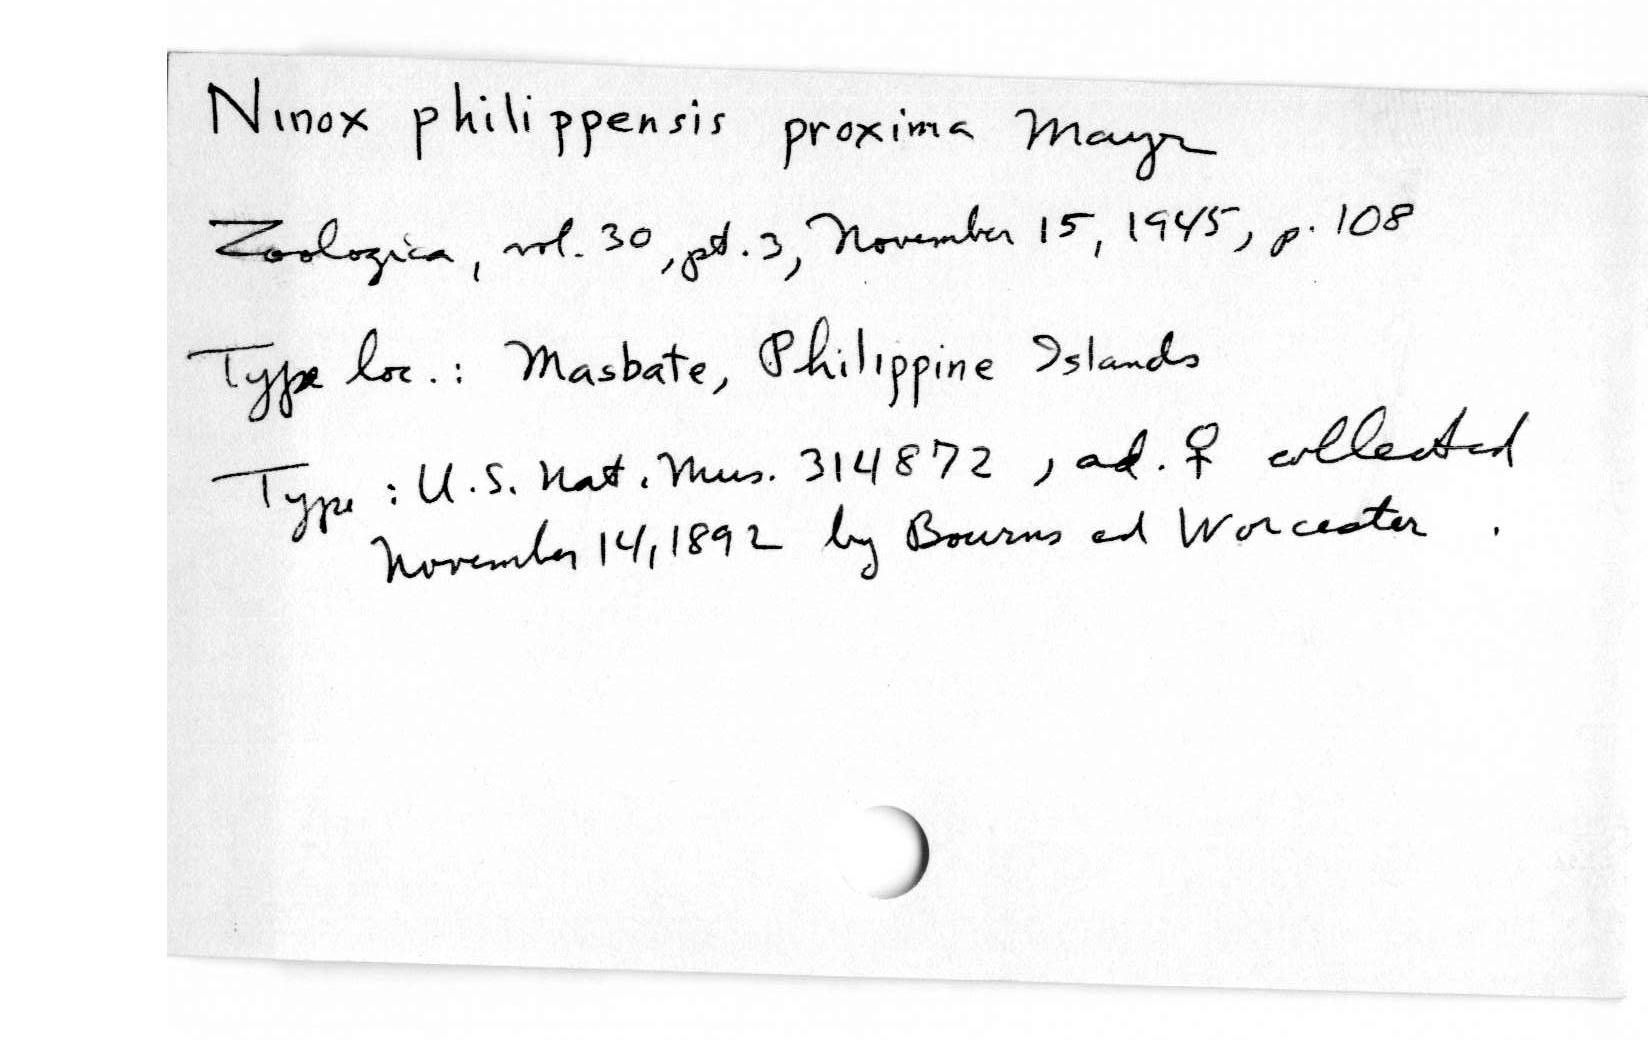 Ninox philippensis proxima Mayr
Zoologica, vol. 30, pt. 3, November 15, 1945, p. 108
Type loc.: Masbate, Philippine Islands
Type: U.S. Nat. Mus. 314872, ad. ♀ collected
November 14, 1892 by Bourns ad Worcester.